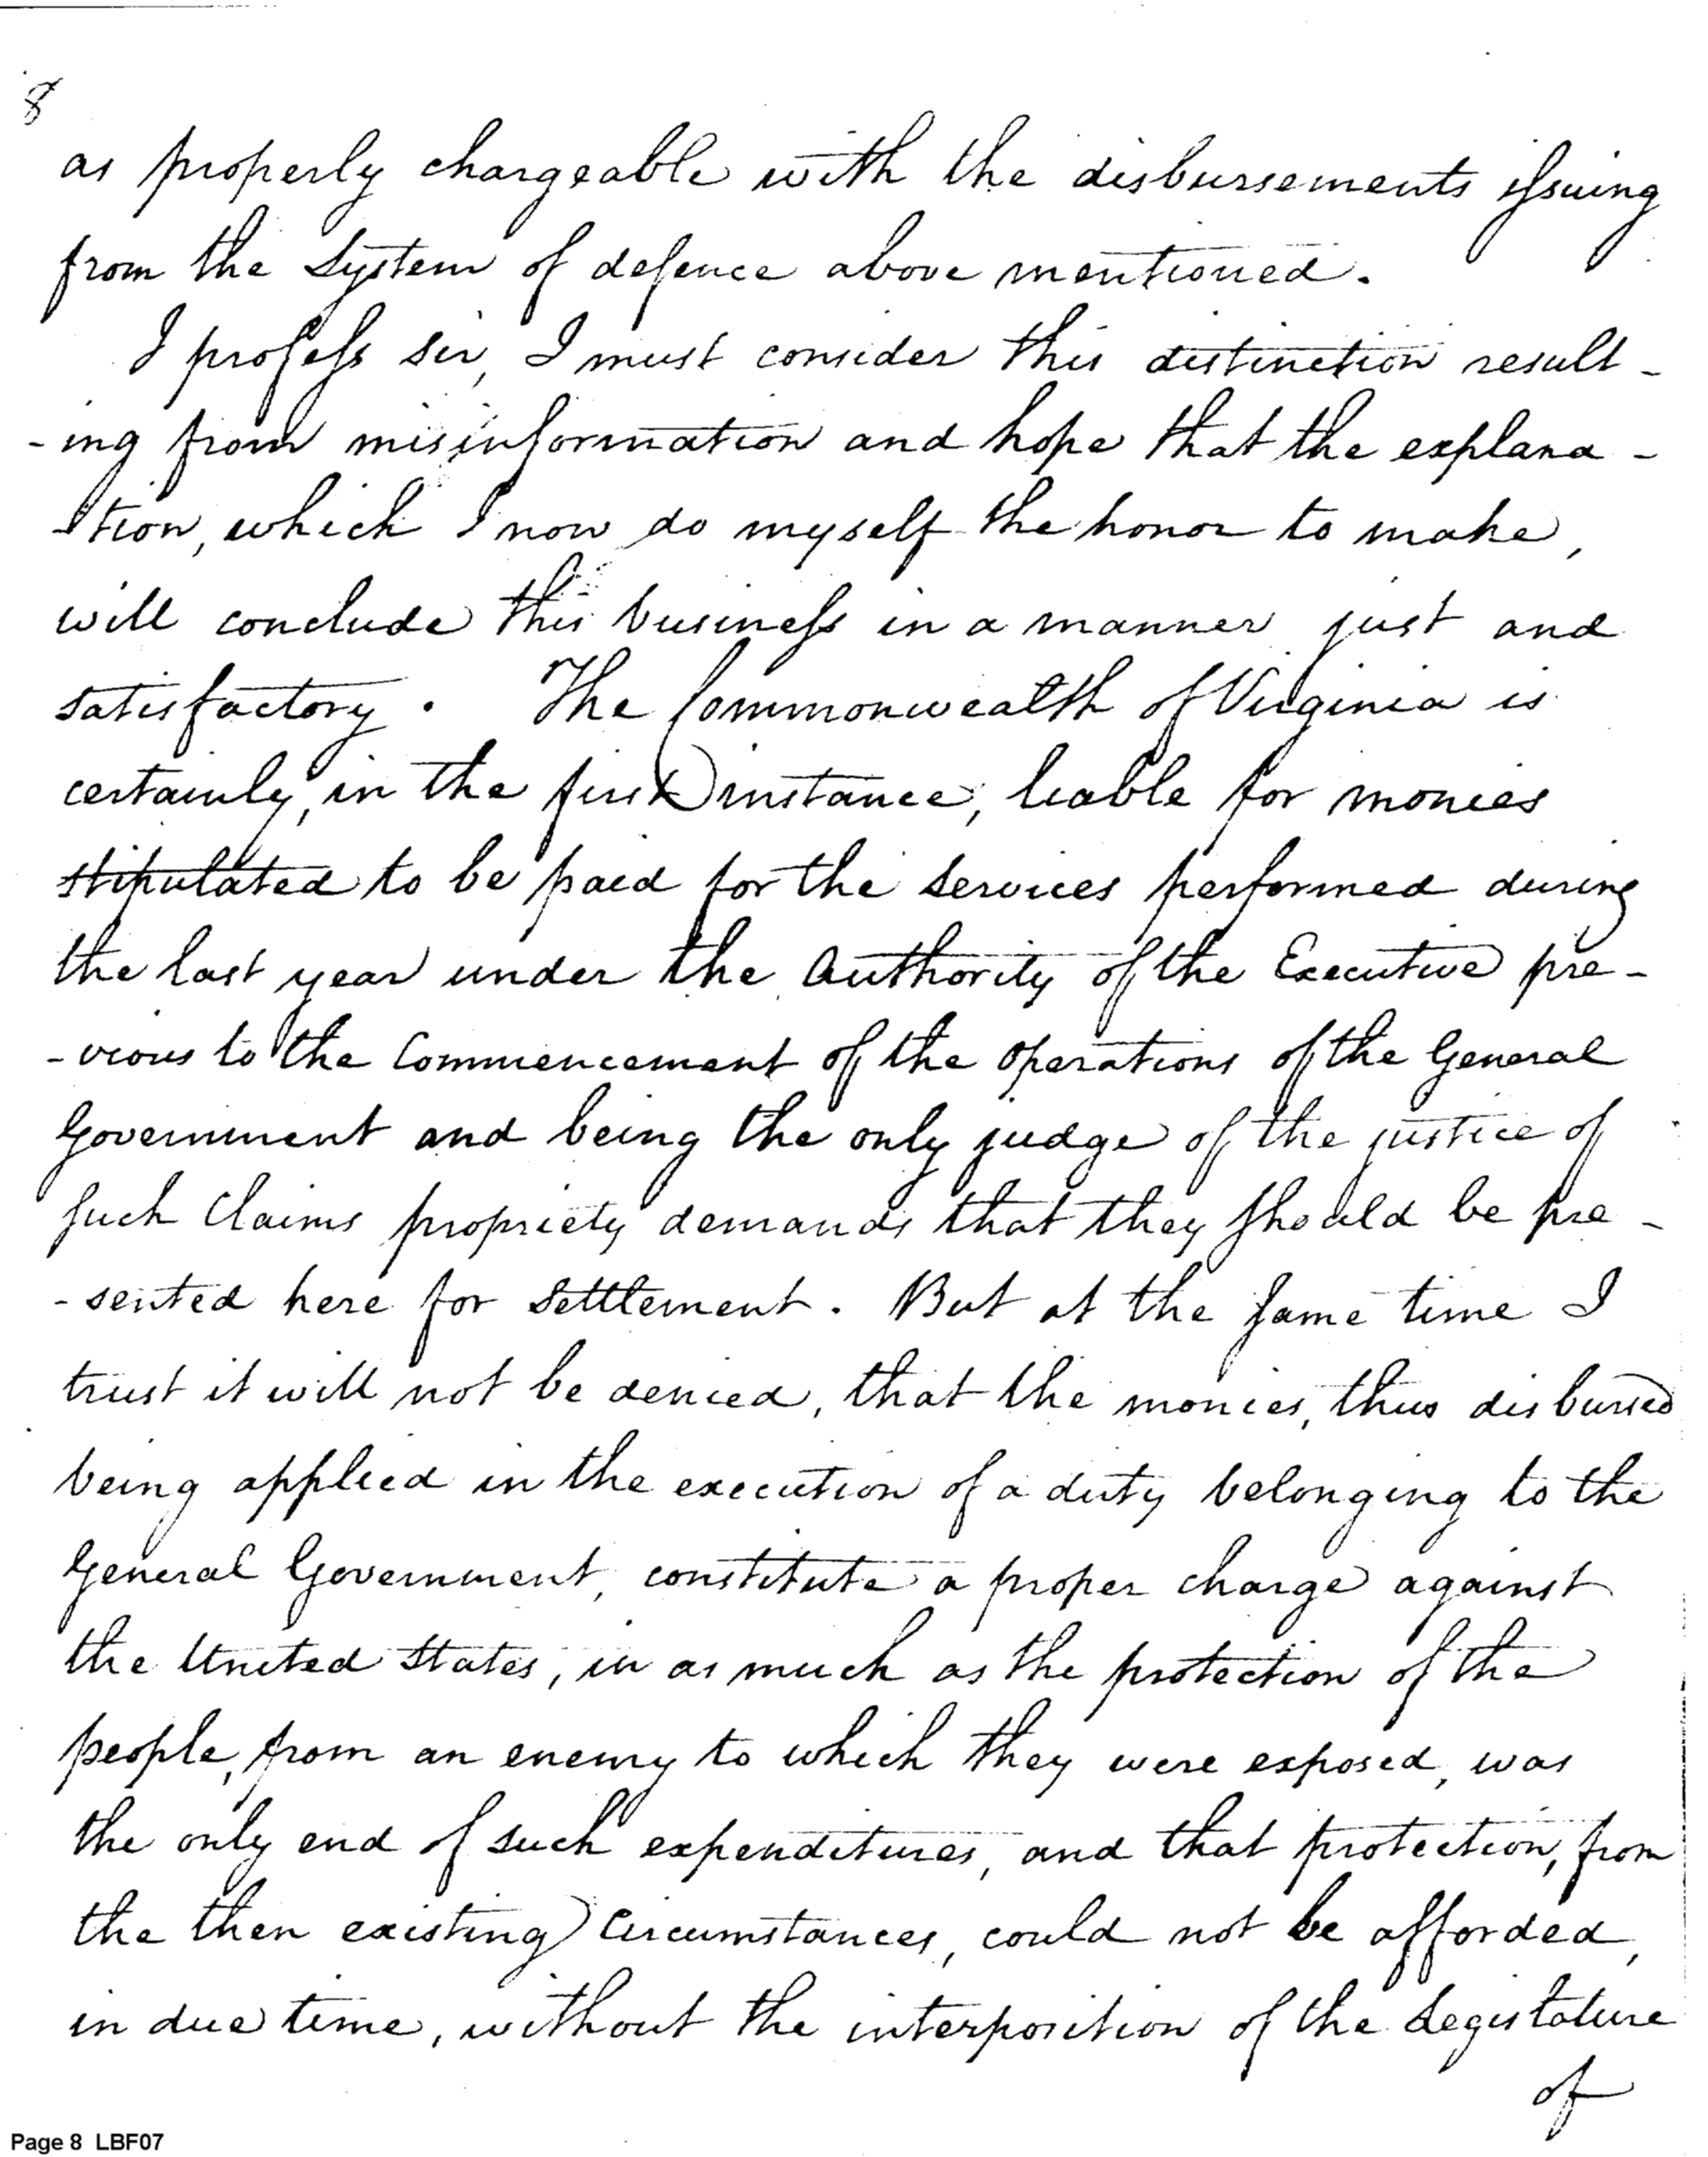 8
as properly chargeable with the disbursements issuing
from the System of defence above mentioned.
I profess sir, I must consider this distinction result-
-ing from misinformation and hope that the explana-
-tion, which I now do myself the honor to make,
will conclude this business in a manner just and
satisfactory. The Commonwealth of Virginia is
certainly, in the first instance, liable for monies
stipulated to be paid for the services performed during
the last year under the Authority of the Executive pre-
-vious to the Commencement of the Operations of the General
Government and being the only judge of the justice of
such Claims propriety demands that they should be pre-
-sented here for settlement. But at the same time I
trust it will not be denied, that the monies, thus disbursed
being applied in the execution of a duty belonging to the
General Government, constitute a proper charge against
the United States, in as much as the protection of the
people, from an enemy to which they were exposed, was
the only end of such expenditures, and that protection, from
the then existing Circumstances, could not be afforded,
in due time, without the interposition of the Legislature
of
Page 8 LBF07